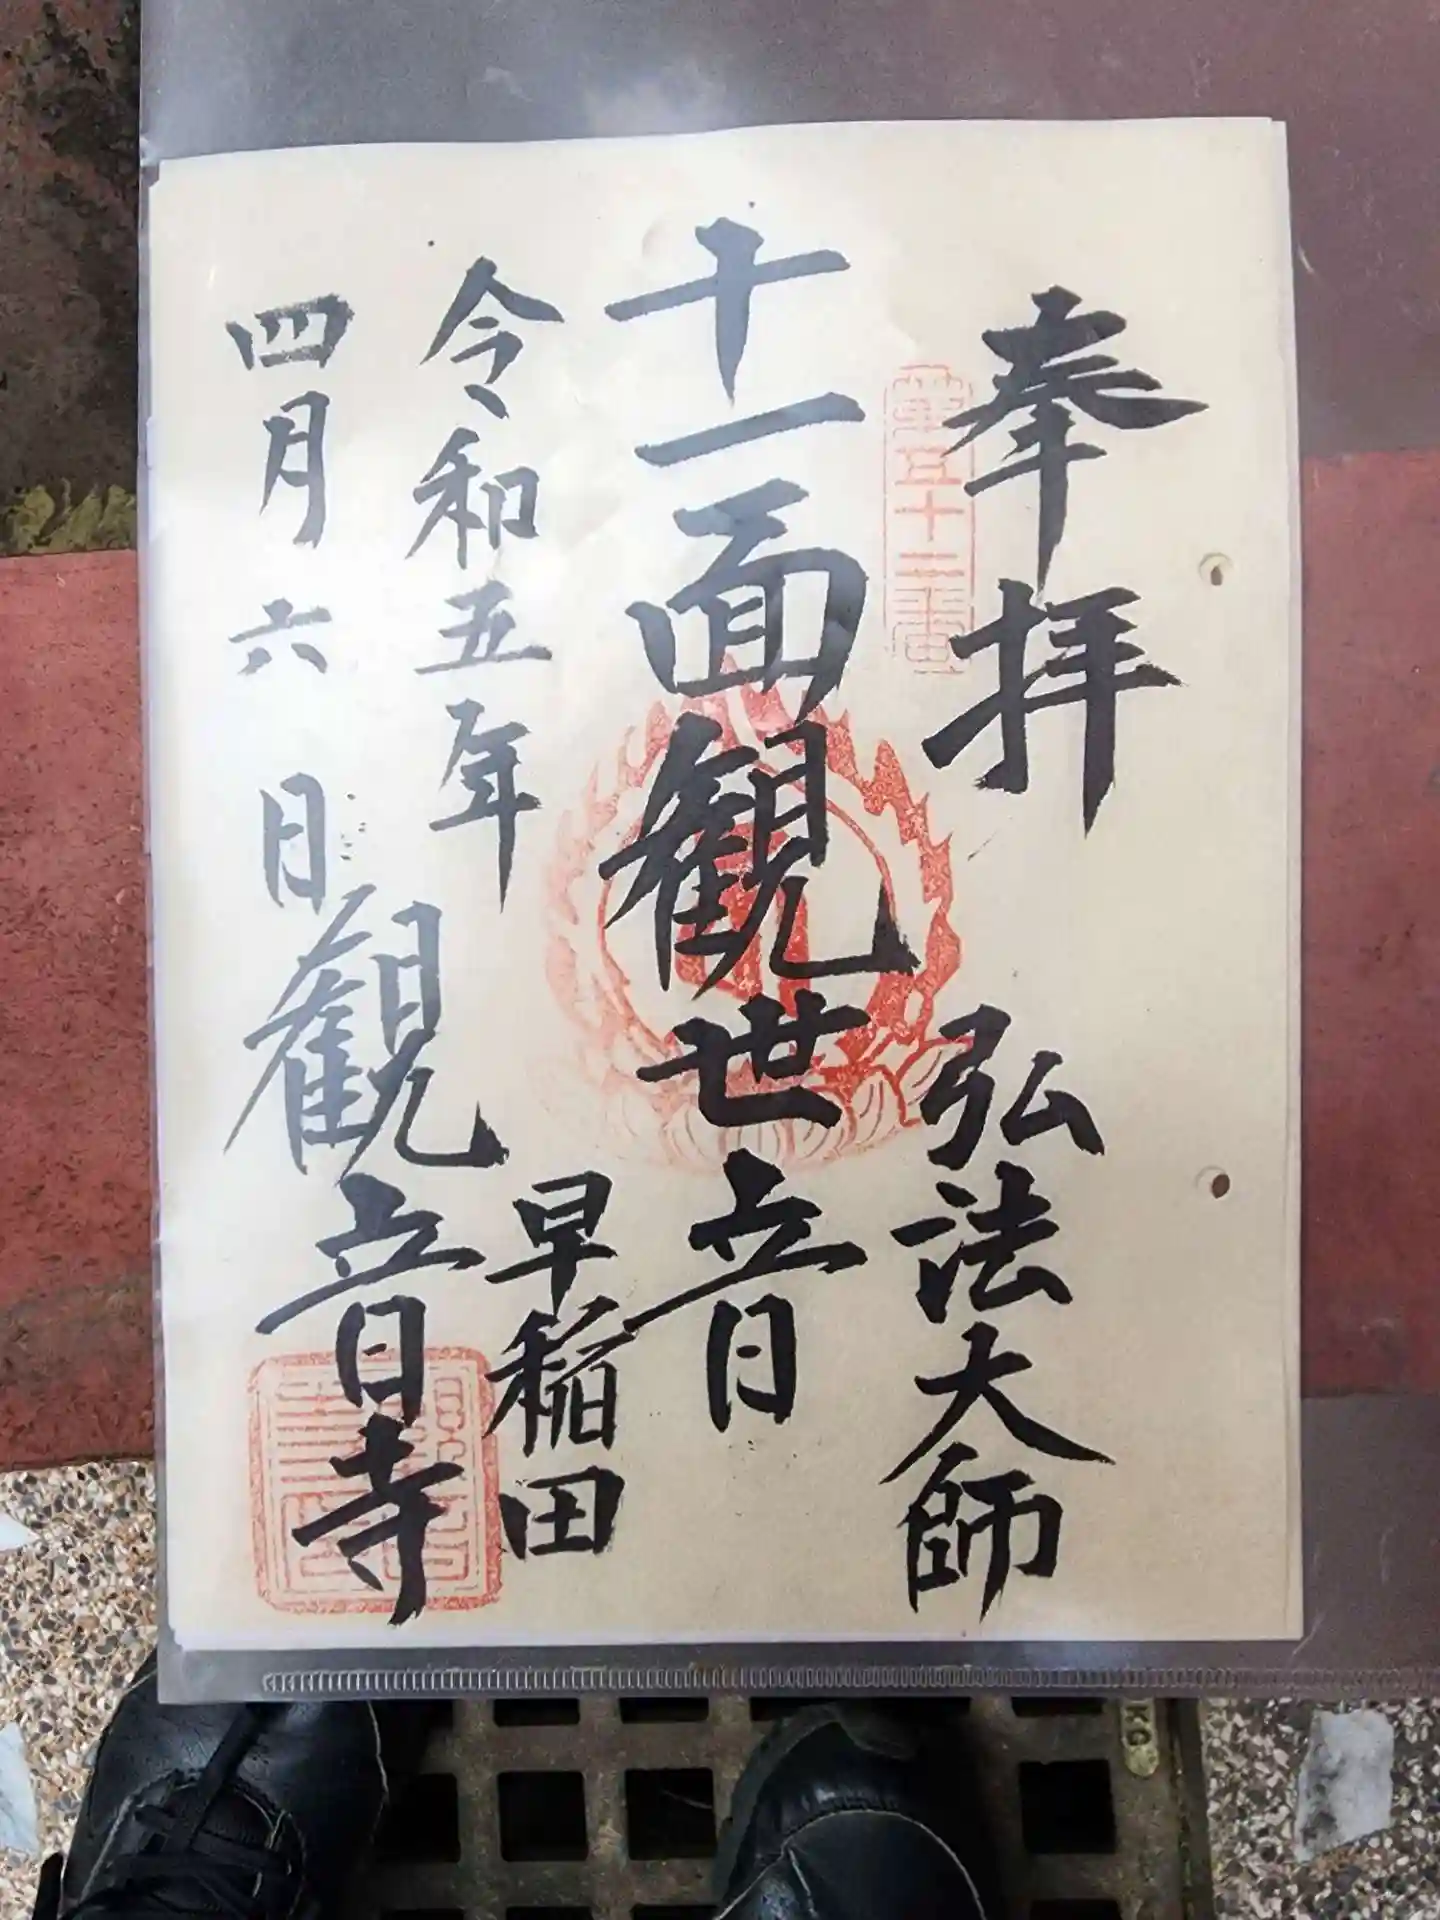 奉拝
弘法大師
第五十二番
十一面観世音
早稲田
令和五年
観音寺
四月六日